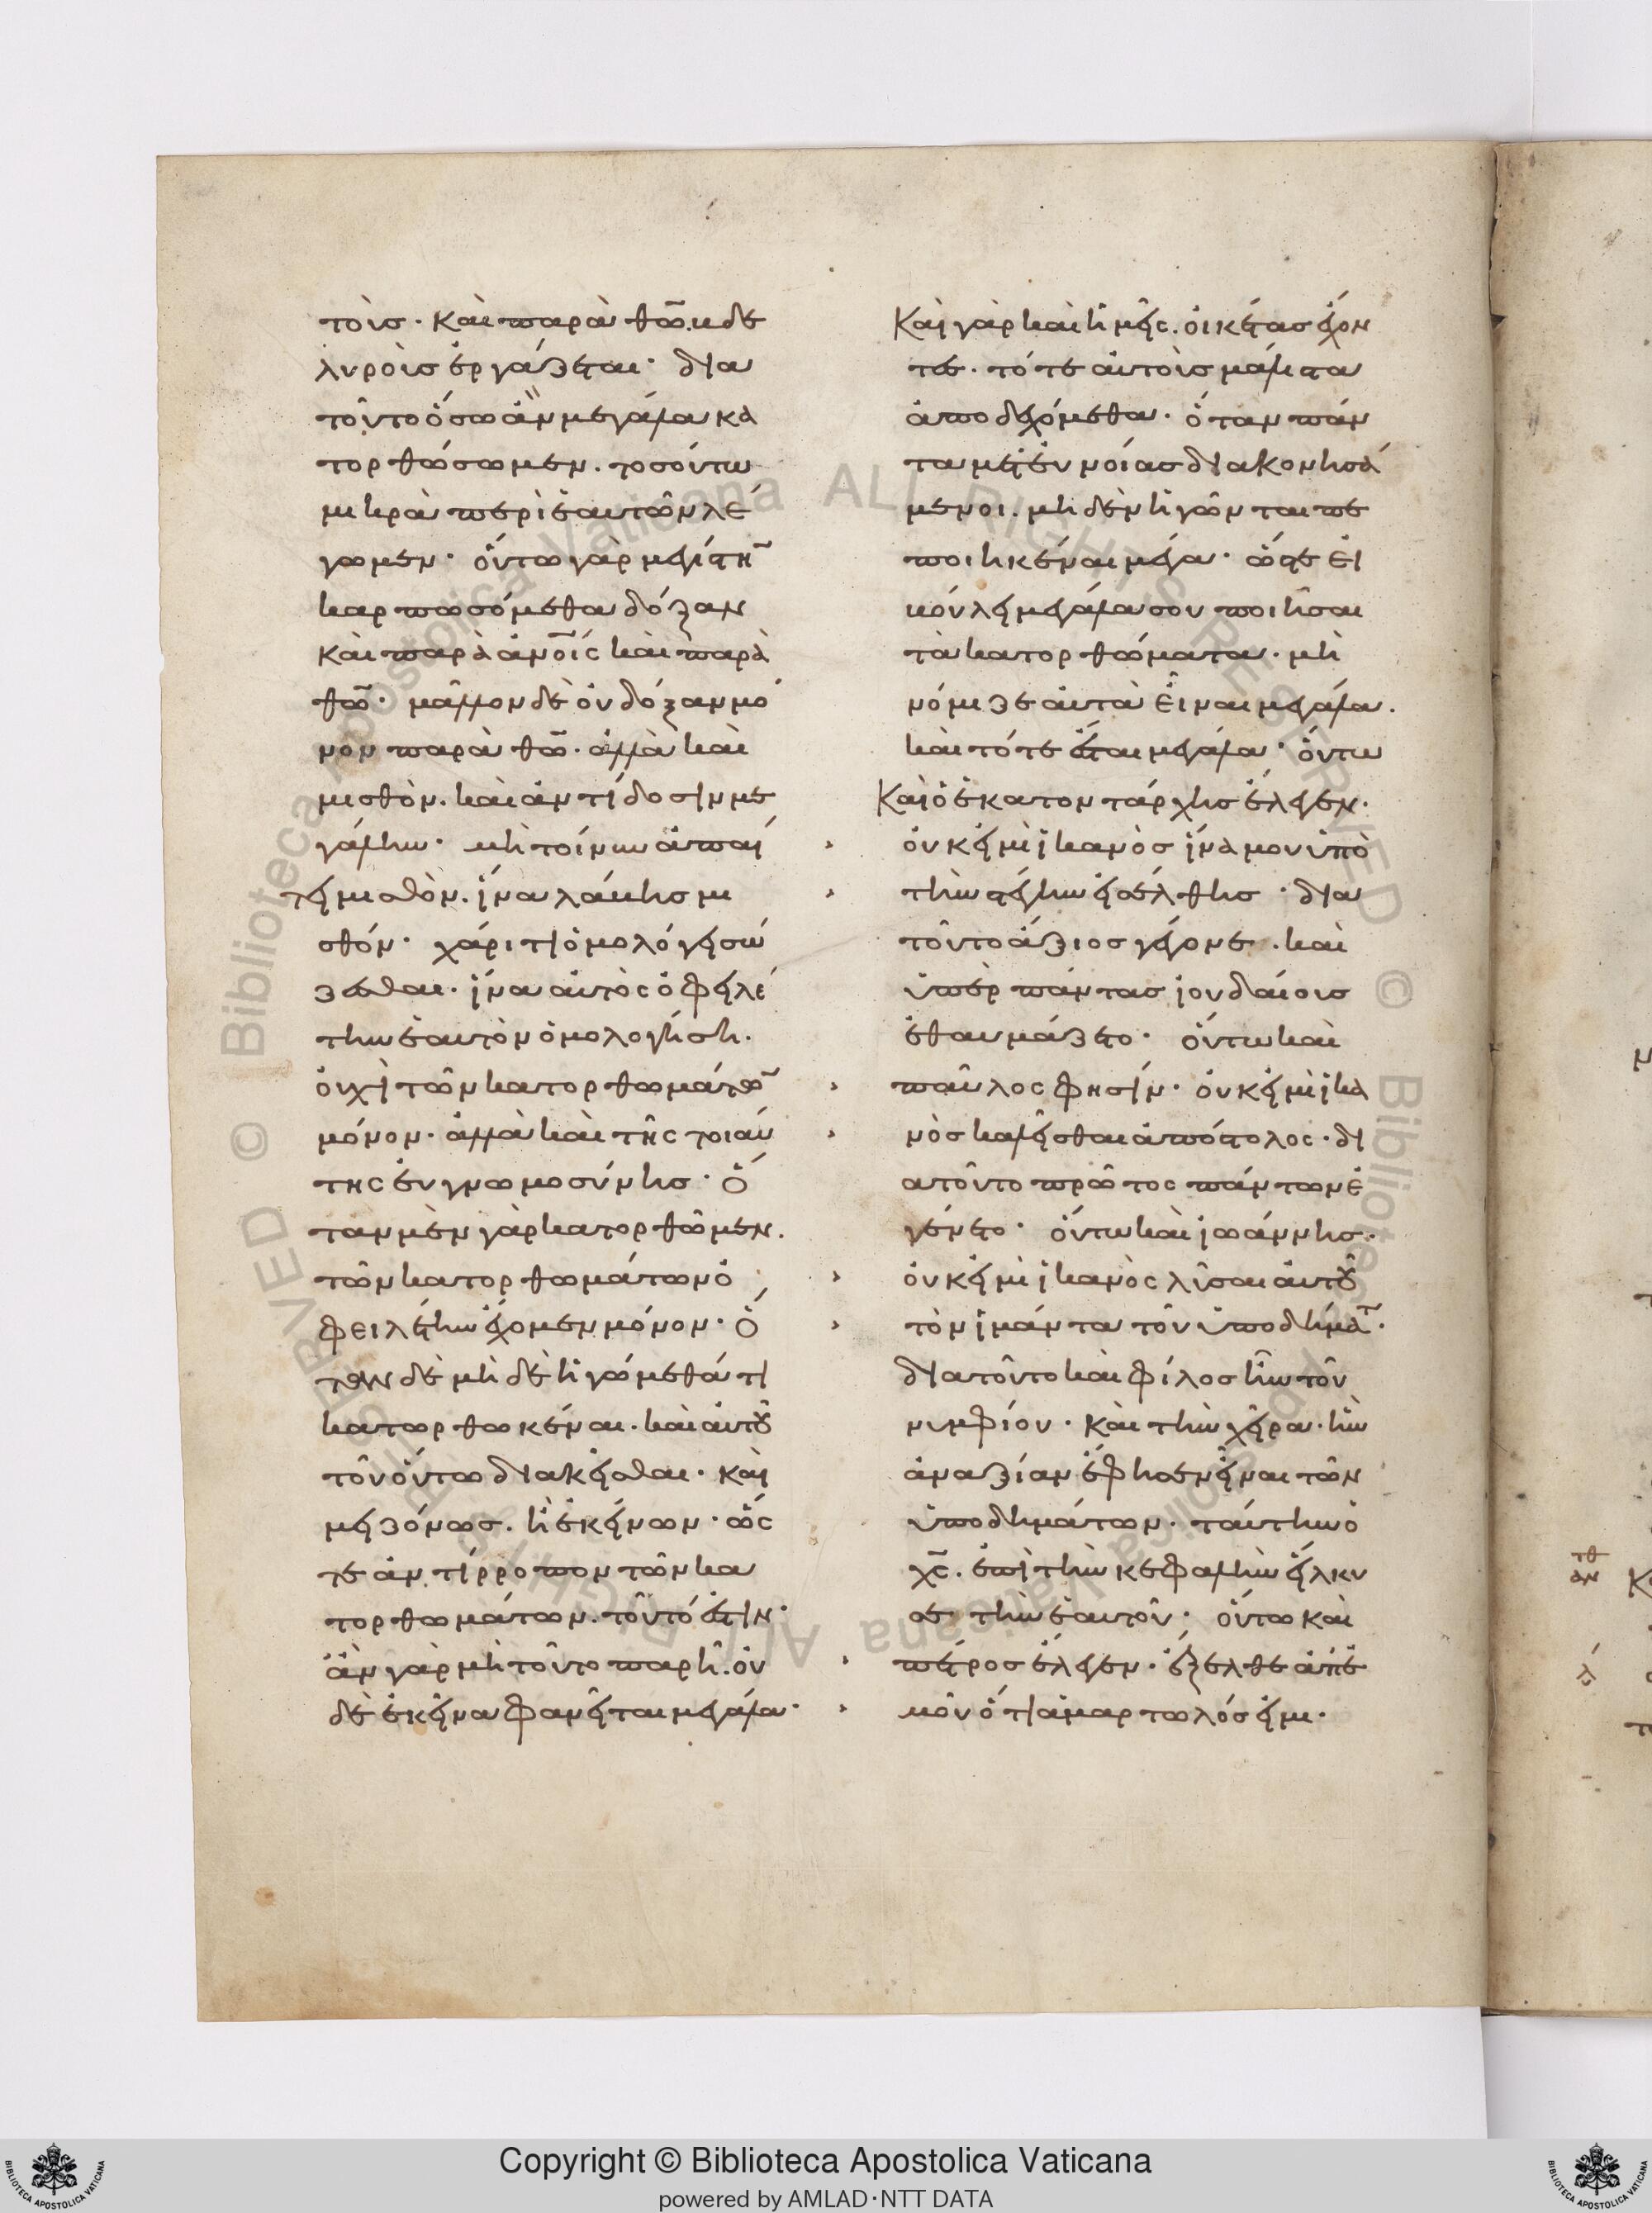 τοῖς· καὶ παρὰ θω̅. βδε
λυροὺς ἐργάζεται· δια
τοῦτο ὅσω ἂν μεγάλα κα
τορθώσωμεν. τοσούτω
μικρὰ περὶ ἑαυτῶν λέ
γωμεν· οὕτω γὰρ μεγίστη̅
καρπωσόμεθα δόξαν
καὶ παρὰ ἀν̅οις καὶ παρὰ
θω̅· μᾶλλον δὲ οὐ δόξαν μό
νον παρὰ θω̅· ἀλλὰ καὶ
μισθὸν. καὶ ἀντίδοσιν με
γάλην· μὴ τοίνυν ἀπαί
τει μισθὸν. ἵνα λάβης μι
σθόν· χάριτι ὁμολόγει σώ
ζεσθαι. ἵνα αὐτὸς ὀφειλέ
την ἑαυτὸν ὁμολογήση.
οὐχὶ τῶν κατορθωμάτω̅
μόνον· ἀλλὰ καὶ τῆς τοιαύ
της εὐγνωμοσύνης· ὅ
ταν μὲν γὰρ κατορθῶμεν.
τῶν κατορθωμάτων ὀ
φειλέτην ἔχομεν μόνον· ὅ
ταν δὲ μὴ δὲ ἡγώμεθά τι
κατωρθωκέναι. καὶ αὐτοῦ
τοῦ οὕτω διακεῖσθαι· καὶ
μειζόνως. ἢ ἐκείνων· ὥς
τε ἀντίρροπον τῶν κα
τορθωμάτων. τοῦτό ἐστιν·
ἂν γὰρ μὴ τοῦτο παρῆ. οὐ
δὲ ἐκεῖνα φανεῖται μεγάλα·
Καὶ γὰρ καὶ ἡμεῖς. οἰκέτας ἔχον
τες. τότε αὐτοὺς μάλιστα
ἀποδεχόμεθα. ὅταν πάν
τα μετ εὐνοίας διακονησά
μενοι. μηδὲν ἡγῶνται πε
ποιηκέναι μέγα· ὥστε εἰ
βούλει μεγάλα σου ποιῆσαι
τὰ κατορθώματα. μὴ
νόμιζε αὐτὰ εἶναι μεγάλα.
καὶ τότε ἔσται μεγάλα· οὕτω
Καὶ ὁ ἑκατοντάρχης ἔλεγεν.
οὐκ εἰμὶ ἱκανὸς ἵνα μου ὑπὸ
τὴν στέγην εἰσέλθης· δια
τοῦτο ἄξιος γέγονε. καὶ
ὑπὲρ πάντας ἰουδαίους
ἐθαυμάζετο· οὕτω καὶ
παῦλος φησίν· οὐκ εἰμὶ ἱκα
νὸς καλεῖσθαι ἀπόστολος· δι
α τοῦτο πρῶτος πάντων ἐ
γένετο· οὕτω καὶ ἰωάννης·
οὐκ εἰμὶ ἱκανὸς λῦσαι αὐτοῦ
τὸν ἱμάντα τοῦ ὑποδήματ̅.
διατοῦτο καὶ φίλος ἦν τοῦ
νυμφίου· καὶ τὴν χεῖρα. ἣν
ἀναξίαν ἔφησεν εἶναι τῶν
ὑποδημάτων. ταύτην ὁ
χς̅. ἐπὶ τὴν κεφαλὴν εἵλκυ
σε τὴν ἑαυτοῦ· οὕτω καὶ
πέτρος ἔλεγεν· ἔξελθε ἀπ ἐ
μοῦ ὅτι ἁμαρτωλός εἰμι.